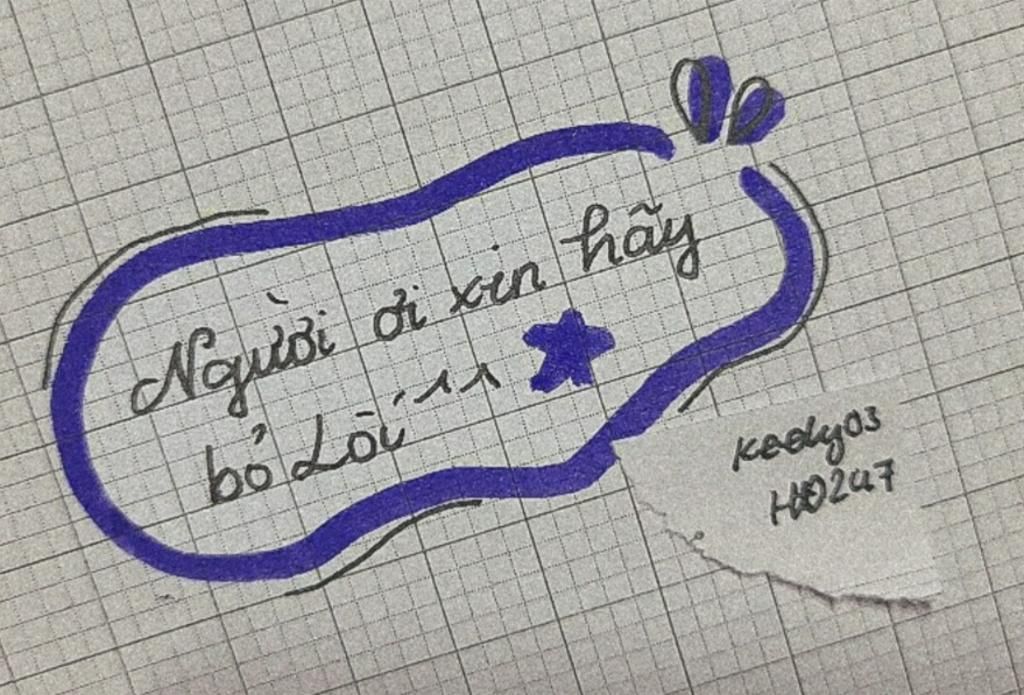 Người ơi xin hãy
bỏ Lỗi ^^
Keely03
H0247